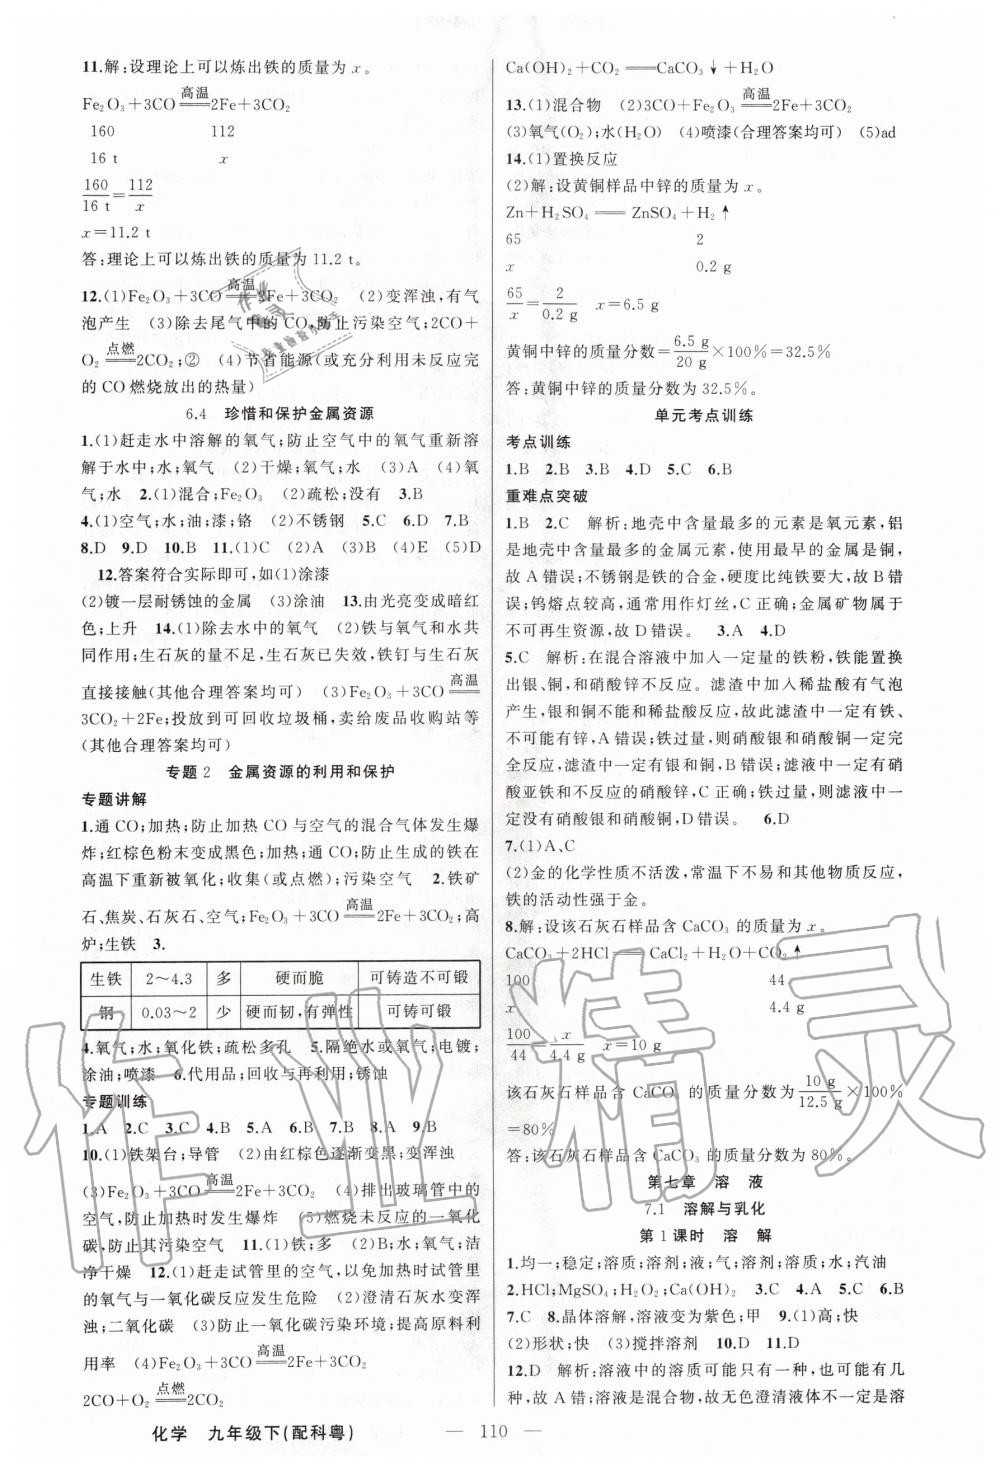 11.解:设理论上可以炼出铁的质量为 x。
Fe₂O₃+3CO══高温══2Fe+3CO₂
160 112
16 t x
160/16 t=112/x
x=11.2 t
答:理论上可以炼出铁的质量为 11.2 t。
12.(1)Fe₂O₃+3CO══高温══2Fe+3CO₂ (2)变浑浊,有气
泡产生 (3)除去尾气中的 CO,防止污染空气;2CO+
O₂══点燃══2CO₂;② (4)节省能源(或充分利用未反应完
的 CO 燃烧放出的热量)
6.4 珍惜和保护金属资源
1.(1)赶走水中溶解的氧气;防止空气中的氧气重新溶
解于水中;水;氧气 (2)干燥;氧气;水 (3)A (4)氧
气;水 2.(1)混合;Fe₂O₃ (2)疏松;没有 3.B
4.(1)空气;水;油;漆;铬 (2)不锈钢 5.C 6.D 7.B
8.D 9.D 10.B 11.(1)C (2)A (3)B (4)E (5)D
12.答案符合实际即可,如(1)涂漆
(2)镀一层耐锈蚀的金属 (3)涂油 13.由光亮变成暗红
色;上升 14.(1)除去水中的氧气 (2)铁与氧气和水共
同作用;生石灰的量不足,生石灰已失效,铁钉与生石灰
直接接触(其他合理答案均可) (3)Fe₂O₃+3CO══高温══
3CO₂+2Fe;投放到可回收垃圾桶,卖给废品收购站等
(其他合理答案均可)
专题 2 金属资源的利用和保护
专题讲解
1.通 CO;加热;防止加热 CO 与空气的混合气体发生爆
炸;红棕色粉末变成黑色;加热;通 CO;防止生成的铁在
高温下重新被氧化;收集(或点燃);污染空气 2.铁矿
石、焦炭、石灰石、空气;Fe₂O₃+3CO══高温══2Fe+3CO₂;高
炉;生铁 3.
生铁 2～4.3 多 硬而脆 可铸造不可锻
钢 0.03～2 少 硬而韧,有弹性 可铸可锻
4.氧气;水;氧化铁;疏松多孔 5.隔绝水或氧气;电镀;
涂油;喷漆 6.代用品;回收与再利用;锈蚀
专题训练
1.A 2.C 3.C 4.B 5.A 6.B 7.B 8.A 9.B
10.(1)铁架台;导管 (2)由红棕色逐渐变黑;变浑浊
(3)Fe₂O₃+3CO══高温══2Fe+3CO₂ (4)排出玻璃管中的
空气,防止加热时发生爆炸 (5)燃烧未反应的一氧化
碳,防止污染空气 11.(1)铁;多 (2)B;水;氧气;洁
净干燥 12.(1)赶走试管里的空气,以免加热时试管里
的氧气与一氧化碳反应发生危险 (2)澄清石灰水变浑
浊;二氧化碳 (3)防止一氧化碳污染环境;提高原料利
用率 (4)Fe₂O₃+3CO══高温══2Fe+3CO₂
2CO+O₂══点燃══2CO₂
Ca(OH)₂+CO₂══CaCO₃↓+H₂O
13.(1)混合物 (2)3CO+Fe₂O₃══高温══2Fe+3CO₂
(3)氧气(O₂);水(H₂O) (4)喷漆(合理答案均可) (5)ad
14.(1)置换反应
(2)解:设黄铜样品中锌的质量为 x。
Zn+H₂SO₄══ZnSO₄+H₂↑
65 2
x 0.2 g
65/x=2/0.2 g x=6.5 g
黄铜中锌的质量分数=6.5 g/20 g×100%=32.5%
答:黄铜中锌的质量分数为 32.5%。
单元考点训练
考点训练
1.B 2.B 3.B 4.D 5.C 6.B
重难点突破
1.B 2.C 解析:地壳中含量最多的元素是氧元素,铝
是地壳中含量最多的金属元素,使用最早的金属是铜,
故 A 错误;不锈钢是铁的合金,硬度比纯铁要大,故 B 错
误;钨熔点较高,通常用作灯丝,C 正确;金属矿物属于
不可再生资源,故 D 错误。 3.A 4.D
5.C 解析:在混合溶液中加入一定量的铁粉,铁能置换
出银、铜,和硝酸锌不反应。滤渣中加入稀盐酸有气泡
产生,银和铜不能和稀盐酸反应,故此滤渣中一定有铁、
不可能有锌,A 错误;铁过量,则硝酸银和硝酸铜一定完
全反应,滤渣中一定有银和铜,B 错误;滤液中一定有硝
酸亚铁和不反应的硝酸锌,C 正确;铁过量,则滤液中一
定没有硝酸银和硝酸铜,D 错误。 6.D
7.(1)A、C
(2)金的化学性质不活泼,常温下不易和其他物质反应,
铁的活动性强于金。
8.解:设该石灰石样品含 CaCO₃ 的质量为 x。
CaCO₃+2HCl══CaCl₂+H₂O+CO₂↑
100 44
x 4.4 g
100/44=x/4.4 g x=10 g
该石灰石样品含 CaCO₃ 的质量分数为10 g/12.5 g×100%
=80%
答:该石灰石样品含 CaCO₃ 的质量分数为 80%。
第七章 溶 液
7.1 溶解与乳化
第 1 课时 溶 解
1.均一;稳定;溶剂;溶剂;液;气;溶剂;溶质;水;汽油
2.HCl;MgSO₄;H₂O;Ca(OH)₂ 3.C 4.A 5.C 6.B
7.C 8.晶体溶解,溶液变为紫色;甲 9.(1)高;快
(2)形状;快 (3)搅拌溶剂 10.D 11.D
12.D 解析:溶液中的溶质可能只有一种,也可能有几
种,故 A 错;溶液是混合物,故无色澄清液体不一定是溶
化学 九年级下(配科粤)
— 110 —
作业精灵